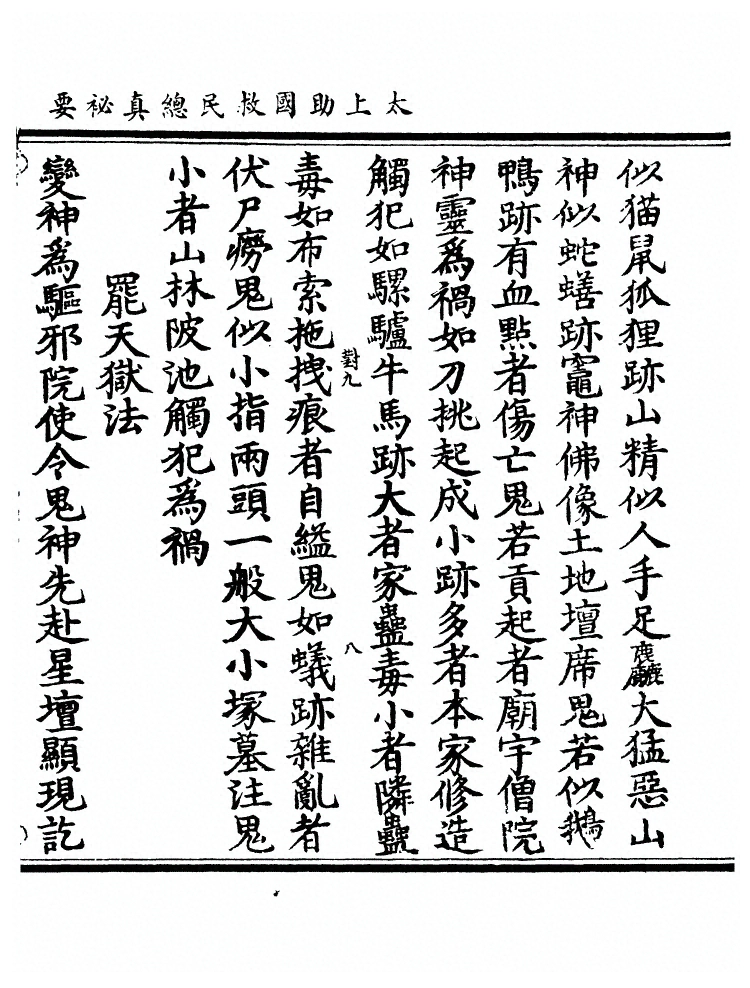 太上助國救民總真祕要
似猫鼠狐狸跡山精似人手足麄大猛惡山
神似蛇蟮跡竈神佛像土地壇席鬼若似鵝
鴨跡有血點者傷亡鬼若貢起者廟宇僧院
神靈為禍如刀挑起成小跡多者本家修造
觸犯如騾驢牛馬跡大者家蠱毒小者隣蠱
對九
八
毒如布索拖拽痕者自縊鬼如蟻跡雜亂者
伏尸癆鬼似小指兩頭一般大小塚墓注鬼
小者山林陂池觸犯為禍
罷天獄法
變神為驅邪院使令鬼神先赴星壇顯現訖